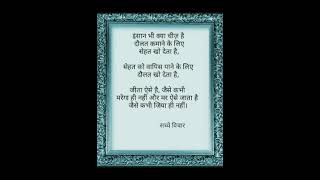 इंसान भी क्या चीज़ है
दौलत कमाने के लिए
सेहत खो देता है,
सेहत को वापिस पाने के लिए
दौलत खो देता है,
जीता ऐसे है, जैसे कभी
मरेगा ही नहीं और मर ऐसे जाता है
जैसे कभी जिया ही नहीं।
सच्चे विचार